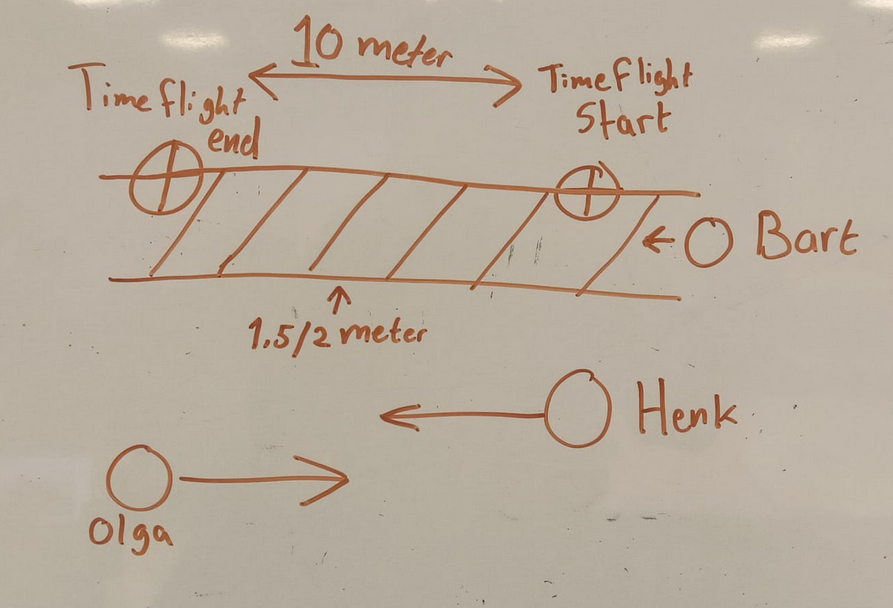 10 meter
Timeflight
end
Timeflight
Start
Bart
1.5/2 meter
Henk
Olga